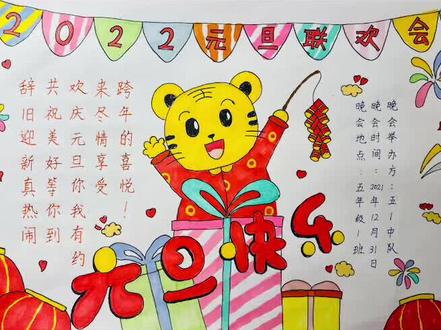 2022元旦联欢会
辞旧迎新真热闹
共祝美好等你到
欢庆元旦你我有约
来尽情享受
跨年的喜悦!
晚会举办方:五1中队
晚会时间:2021年12月31日
晚会地点:五年级1班
元旦快乐